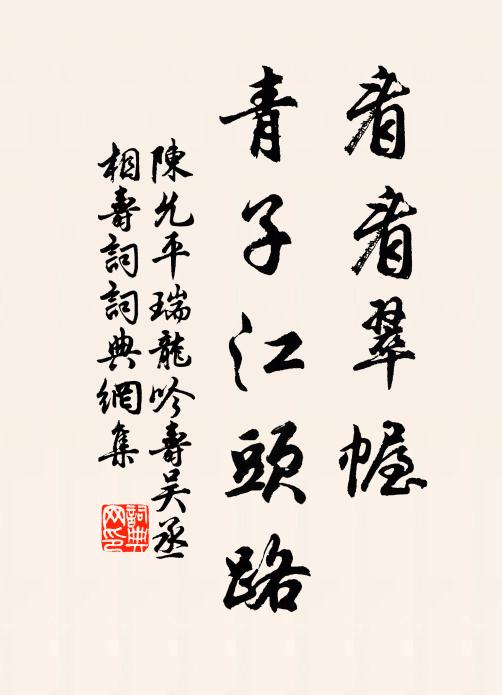 看看翠幄
青子江頭路
陳允平瑞龍吟壽吳丞
相壽詞詞典網集
詞典
网印